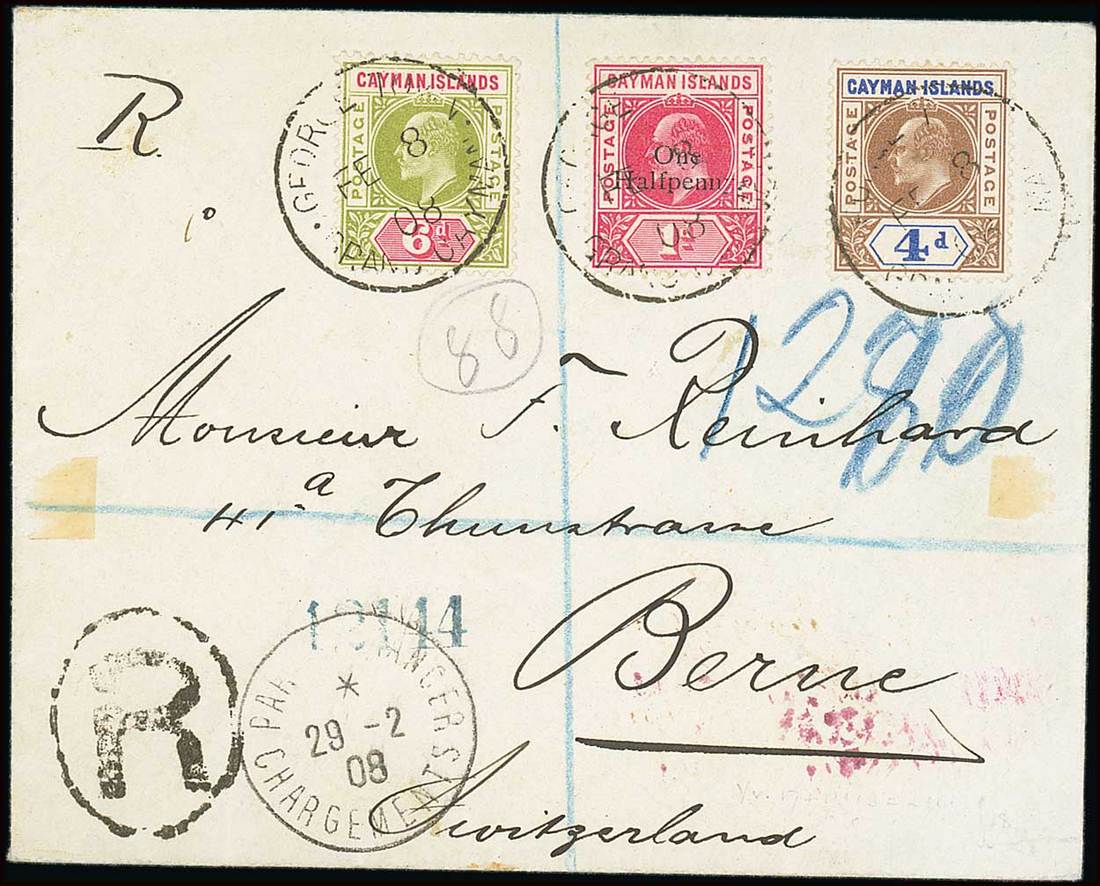 R.
CAYMAN ISLANDS
POSTAGE POSTAGE
6d
GEORGE
FE 8
08
GRAND CAYMAN
CAYMAN ISLANDS
POSTAGE POSTAGE
One
Halfpenn
1d
08
CAYMAN ISLANDS
POSTAGE POSTAGE
4d
88
1280
Monsieur F. Reinhard
41a Thunstrasse
Berne
Switzerland
12144
R
ETRANGER
*
29 -2
08
CHARGEMENTS